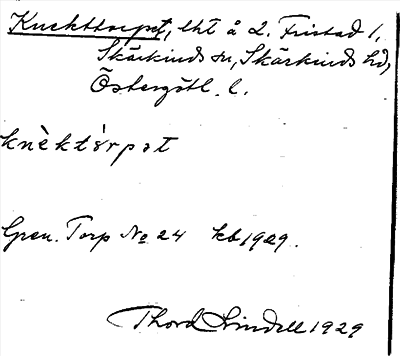 Knekttorpet, lht å L. Fristad 1,
Skärkinds sn, Skärkinds hd,
Östergötl. l.
knèktórpət
Gren. Torp No 24 kb 1929.
Thord Lindell 1929